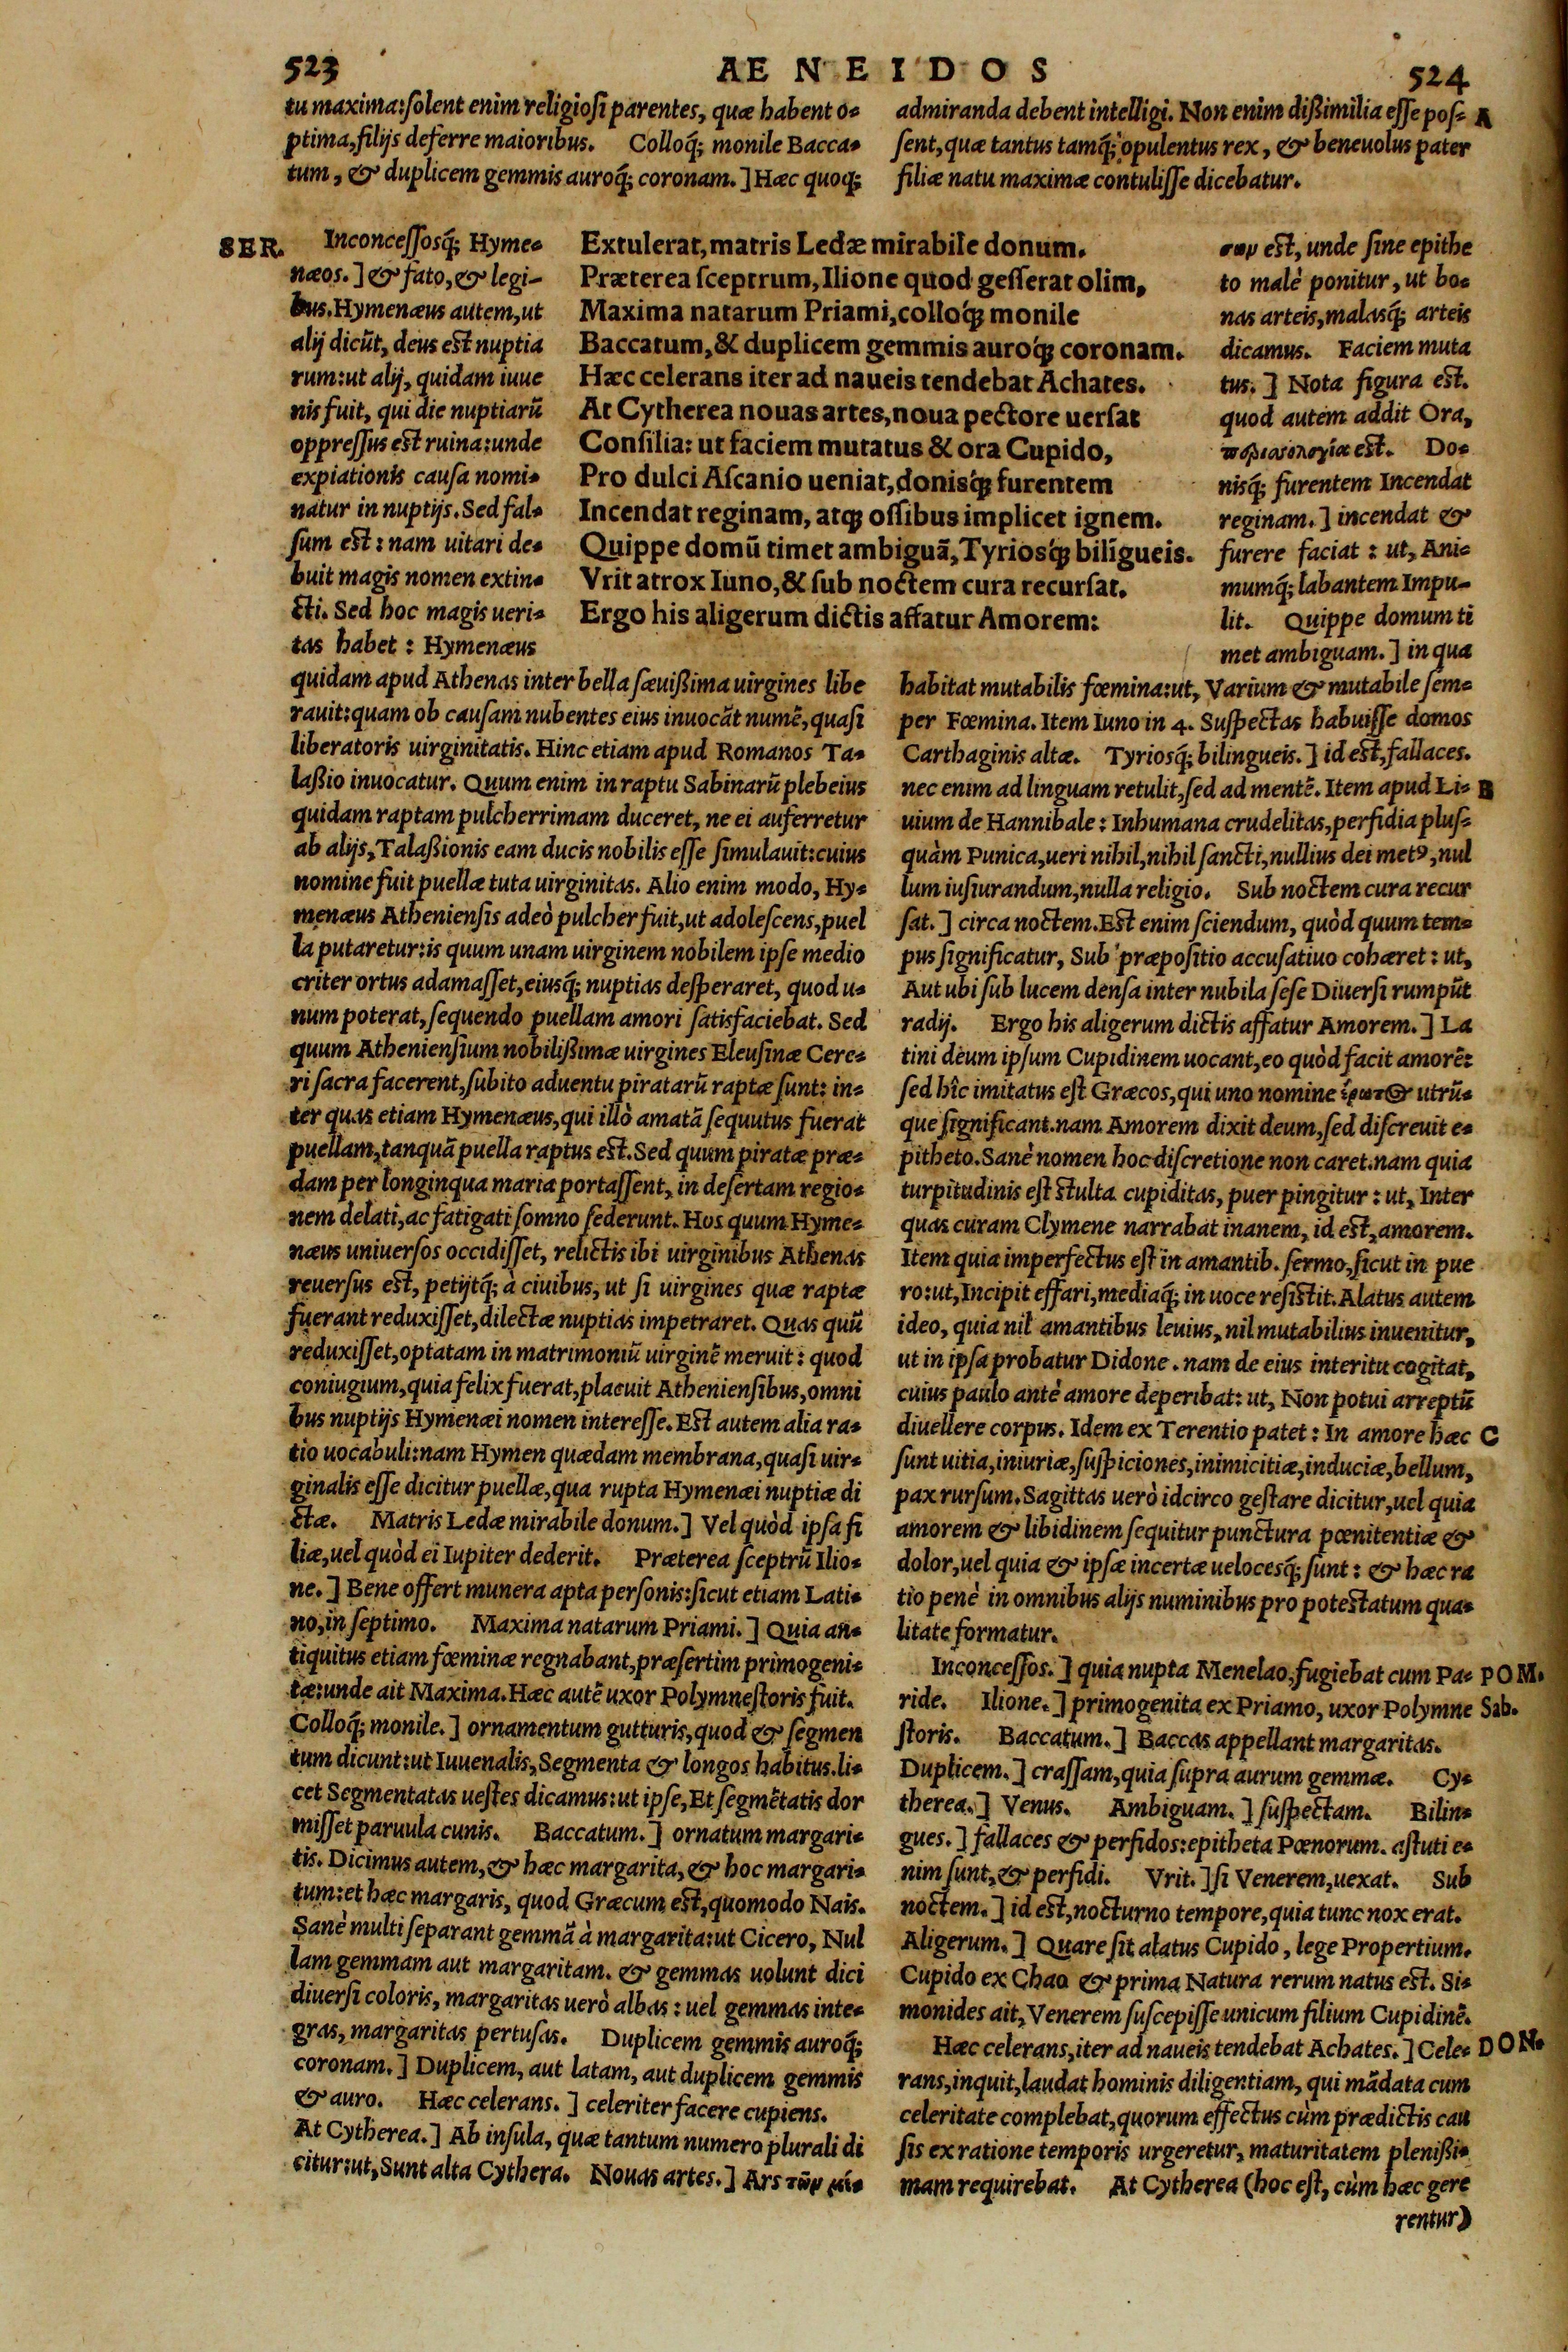 523
AENEIDOS
524
tu maxima:ſolent enim religioſi parentes, quæ habent o-
ptima,filijs deferre maioribus. Colloq́; monile Bacca-
tum, & duplicem gemmis auroq́; coronam.] Hæc quoq;
admiranda debent intelligi. Non enim dißimilia eſſe poſ- A
ſent,quæ tantus tamq́; opulentus rex, & beneuolus pater
filiæ natu maximæ contuliſſe dicebatur.
SER. Inconceſſosq́; Hyme-
næos.] & fato, & legi-
bus.Hymenæus autem,ut
alij dicūt, deus est nuptia
rum:ut alij, quidam iuue
nis fuit, qui die nuptiarū
oppreſſus est ruina:unde
expiationis cauſa nomi-
natur in nuptijs. Sed fal-
ſum est: nam uitari de-
buit magis nomen extin-
cti. Sed hoc magis ueri-
tas habet: Hymenæus
Extulerat,matris Ledæ mirabile donum.
Præterea ſceptrum,Ilione quod geſſerat olim,
Maxima natarum Priami,colloq́; monile
Baccatum,& duplicem gemmis auroq́; coronam.
Hæc celerans iter ad naueis tendebat Achates.
At Cytherea nouas artes,noua pectore uerſat
Conſilia: ut faciem mutatus & ora Cupido,
Pro dulci Aſcanio ueniat,donisq́; furentem
Incendat reginam, atq; oſſibus implicet ignem.
Quippe domū timet ambiguā,Tyriosq́; bilīgueis.
Vrit atrox Iuno,& ſub noctem cura recurſat.
Ergo his aligerum dictis affatur Amorem:
σων est, unde ſine epithe
to malè ponitur, ut bo-
nas arteis,malasq́; arteis
dicamus. Faciem muta
tus.] Nota figura est.
quod autem addit Ora,
περιασολογία est. Do-
nisq́; furentem Incendat
reginam.] incendat &
furere faciat: ut, Ani-
mumq́; labantem Impu-
lit. Quippe domum ti
met ambiguam.] in qua
quidam apud Athenas inter bella ſæuißima uirgines libe
rauit:quam ob cauſam nubentes eius inuocāt numē,quaſi
liberatoris uirginitatis. Hinc etiam apud Romanos Ta-
laßio inuocatur. Quum enim in raptu Sabinarū plebeius
quidam raptam pulcherrimam duceret, ne ei auferretur
ab alijs,Talaßionis eam ducis nobilis eſſe ſimulauit:cuius
nomine fuit puellæ tuta uirginitas. Alio enim modo, Hy-
menæus Athenienſis adeò pulcher fuit,ut adoleſcens,puel
la putaretur:is quum unam uirginem nobilem ipſe medio
criter ortus adamaſſet,eiusq́; nuptias deſperaret, quod u-
num poterat,ſequendo puellam amori ſatisfaciebat. Sed
quum Athenienſium nobilißimæ uirgines Eleuſinæ Cere-
ri ſacra facerent,ſubito aduentu piratarū raptæ ſunt: in-
ter quas etiam Hymenæus,qui illò amatā ſequutus fuerat
puellam,tanquā puella raptus est.Sed quum piratæ præ-
dam per longinqua maria portaſſent, in deſertam regio-
nem delati,ac fatigati ſomno ſederunt. Hos quum Hyme-
næus uniuerſos occidiſſet, relictis ibi uirginibus Athenas
reuerſus est, petijtq́; à ciuibus, ut ſi uirgines quæ raptæ
fuerant reduxiſſet,dilectæ nuptias impetraret. Quas quū
reduxiſſet,optatam in matrimoniū uirginē meruit: quod
coniugium,quia felix fuerat,placuit Athenienſibus,omni
bus nuptijs Hymenæi nomen intereſſe.Est autem alia ra-
tio uocabuli:nam Hymen quædam membrana,quaſi uir-
ginalis eſſe dicitur puellæ,qua rupta Hymenæi nuptiæ di
ctæ. Matris Ledæ mirabile donum.] Vel quòd ipſa fi
liæ,uel quòd ei Iupiter dederit. Præterea ſceptrū Ilio-
ne.] Bene offert munera apta perſonis:ſicut etiam Lati-
no,in ſeptimo. Maxima natarum Priami.] Quia an-
tiquitus etiam fœminæ regnabant,præſertim primogeni-
tæ:unde ait Maxima.Hæc autē uxor Polymneſtoris fuit.
Colloq́; monile.] ornamentum gutturis,quod & ſegmen
tum dicunt:ut Iuuenalis,Segmenta & longos habitus.li-
cet Segmentatas ueſtes dicamus:ut ipſe,Et ſegmētatis dor
miſſet paruula cunis. Baccatum.] ornatum margari-
tis. Dicimus autem, & hæc margarita, & hoc margari-
tum:et hæc margaris, quod Græcum est,quomodo Nais.
Sanè multi ſeparant gemmā à margarita:ut Cicero, Nul
lam gemmam aut margaritam. & gemmas uolunt dici
diuerſi coloris, margaritas uerò albas: uel gemmas inte-
gras, margaritas pertuſas. Duplicem gemmis auroq́;
coronam.] Duplicem, aut latam, aut duplicem gemmis
& auro. Hæc celerans.] celeriter facere cupiens.
At Cytherea.] Ab inſula, quæ tantum numero plurali di
citur:ut,Sunt alta Cythera. Nouas artes.] Ars τῶν μέ-
habitat mutabilis fœmina:ut, Varium & mutabile ſem-
per Fœmina. Item Iuno in 4. Suſpectas habuiſſe domos
Carthaginis altæ. Tyriosq́; bilingueis.] id est,fallaces.
nec enim ad linguam retulit,ſed ad mentē. Item apud Li- B
uium de Hannibale: Inhumana crudelitas,perfidia pluſ-
quàm Punica,ueri nihil,nihil ſancti,nullius dei metꝰ,nul
lum iuſiurandum,nulla religio. Sub noctem cura recur
ſat.] circa noctem.Est enim ſciendum, quòd quum tem-
pus ſignificatur, Sub præpoſitio accuſatiuo cohæret: ut,
Aut ubi ſub lucem denſa inter nubila ſeſe Diuerſi rumpūt
radij. Ergo his aligerum dictis affatur Amorem.] La
tini deum ipſum Cupidinem uocant,eo quòd facit amorē:
ſed hîc imitatus eſt Græcos,qui uno nomine ἔρωτος utrū-
que ſignificant.nam Amorem dixit deum,ſed diſcreuit e-
pitheto.Sanè nomen hoc diſcretione non caret.nam quia
turpitudinis eſt stulta cupiditas, puer pingitur: ut, Inter
quas curam Clymene narrabat inanem, id est,amorem.
Item quia imperfectus eſt in amantib. ſermo,ſicut in pue
ro:ut,Incipit effari,mediaq́; in uoce reſistit.Alatus autem
ideo, quia nil amantibus leuius, nil mutabilius inuenitur,
ut in ipſa probatur Didone. nam de eius interitu cogitat,
cuius paulo antè amore deperibat: ut, Non potui arreptū
diuellere corpus. Idem ex Terentio patet: In amore hæc C
ſunt uitia,iniuriæ,ſuſpiciones,inimicitiæ,induciæ,bellum,
pax rurſum.Sagittas uerò idcirco geſtare dicitur,uel quia
amorem & libidinem ſequitur punctura pœnitentiæ &
dolor,uel quia & ipſæ incertæ uelocesq́; ſunt: & hæc ra
tio penè in omnibus alijs numinibus pro potestatum qua-
litate formatur.
Inconceſſos.] quia nupta Menelao,fugiebat cum Pa- POM.
ride. Ilione.] primogenita ex Priamo, uxor Polymne Sab.
ſtoris. Baccatum.] Baccas appellant margaritas.
Duplicem.] craſſam,quia ſupra aurum gemmæ. Cy-
therea.] Venus. Ambiguam.] ſuſpectam. Bilin-
gues.] fallaces & perfidos:epitheta Pœnorum. aſtuti e-
nim ſunt, & perfidi. Vrit.] ſi Venerem,uexat. Sub
noctem.] id est,nocturno tempore,quia tunc nox erat.
Aligerum.] Quare ſit alatus Cupido, lege Propertium.
Cupido ex Chao & prima Natura rerum natus est. Si-
monides ait, Venerem ſuſcepiſſe unicum filium Cupidinē.
Hæc celerans,iter ad naueis tendebat Achates.] Cele- DON.
rans,inquit,laudat hominis diligentiam, qui mādata cum
celeritate complebat,quorum effectus cùm prædictis cau
ſis ex ratione temporis urgeretur, maturitatem plenißi-
mam requirebat. At Cytherea (hoc eſt, cùm hæc gere
rentur)